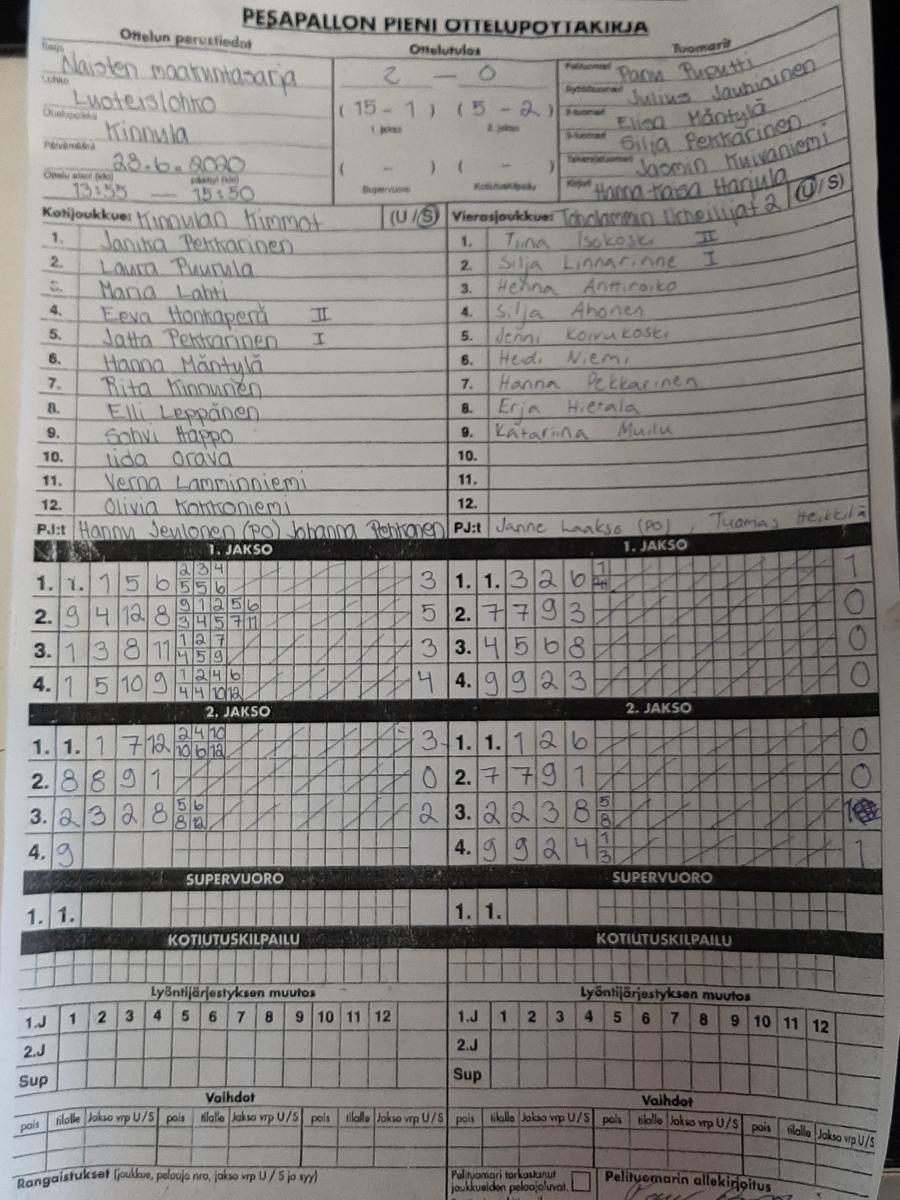 PESÄPALLON PIENI OTTELUPÖYTÄKIRJA
Ottelun perustiedot
Ottelutulos
Tuomarit
Sarja Naisten maakuntasarja
Lohko Luoteislohko
Ottelupaikka Kinnula
Päivämäärä 28.6.2020
Ottelu alkoi (klo) 13:55 — päättyi (klo) 15:50
2 — 0
(15 - 1) (5 - 2)
1. jakso 2. jakso
( - ) ( - )
Supervuoro Kotiutuskilpailu
Pelituomari Panu Puputti
Syöttötuomari Julius Jauhiainen
2-tuomari Elisa Mäntylä
3-tuomari Silja Pekkarinen
Takarajatuomari Jasmin Kuivaniemi
Kirjuri Hanna-Kaisa Harjula
Kotijoukkue: Kinnulan Kimmot (U/S)
1. Janika Pekkarinen
2. Laura Puurula
3. Maria Lahti
4. Eeva Honkaperä II
5. Jatta Pekkarinen I
6. Hanna Mäntylä
7. Rita Kinnunen
8. Elli Leppänen
9. Sohvi Happo
10. Iida Orava
11. Verna Lamminniemi
12. Olivia Kokkoniemi
PJ:t Hannu Jeulonen (PO) Johanna Penttonen
Vierasjoukkue: Toholammin Urheilijat 2 (U/S)
1. Tiina Isokoski II
2. Silja Linnarinne I
3. Henna Anttiroiko
4. Silja Ahonen
5. Jenni Koivukoski
6. Heidi Niemi
7. Hanna Pekkarinen
8. Erja Hietala
9. Katariina Muilu
10.
11.
12.
PJ:t Janne Laakso (PO), Tuomas Heikkilä
1. JAKSO
1. 1. 1 5 6 2 3 4 3
5 5 6
2. 9 4 12 8 9 1 2 5 6 5
3 4 5 7 11
3. 1 3 8 11 1 2 7 3
4 5 9
4. 1 5 10 9 1 2 4 6 4
4 4 10 12
1. JAKSO
1. 1. 3 2 6 1 1
4
2. 7 7 9 3 0
3. 4 5 6 8 0
4. 9 9 2 3 0
2. JAKSO
1. 1. 1 7 12 2 4 10 3
10 6 12
2. 8 8 9 1 0
3. 2 3 2 8 5 6 2
8 12
4. 9
2. JAKSO
1. 1. 1 2 6 0
2. 7 7 9 1 0
3. 2 2 3 8 5 1
8
4. 9 9 2 4 1 1
3
SUPERVUORO
1. 1.
SUPERVUORO
1. 1.
KOTIUTUSKILPAILU
KOTIUTUSKILPAILU
Lyöntijärjestyksen muutos
1.J 1 2 3 4 5 6 7 8 9 10 11 12
2.J
Sup
Lyöntijärjestyksen muutos
1.J 1 2 3 4 5 6 7 8 9 10 11 12
2.J
Sup
Vaihdot
pois tilalle Jakso vrp U/S pois tilalle Jakso vrp U/S pois tilalle Jakso vrp U/S
Vaihdot
pois tilalle Jakso vrp U/S pois tilalle Jakso vrp U/S pois tilalle Jakso vrp U/S
Rangaistukset (joukkue, pelaaja nro, jakso vrp U/S ja syy)
Pelituomari tarkastanut
joukkueiden pelaajaluvat.
Pelituomarin allekirjoitus